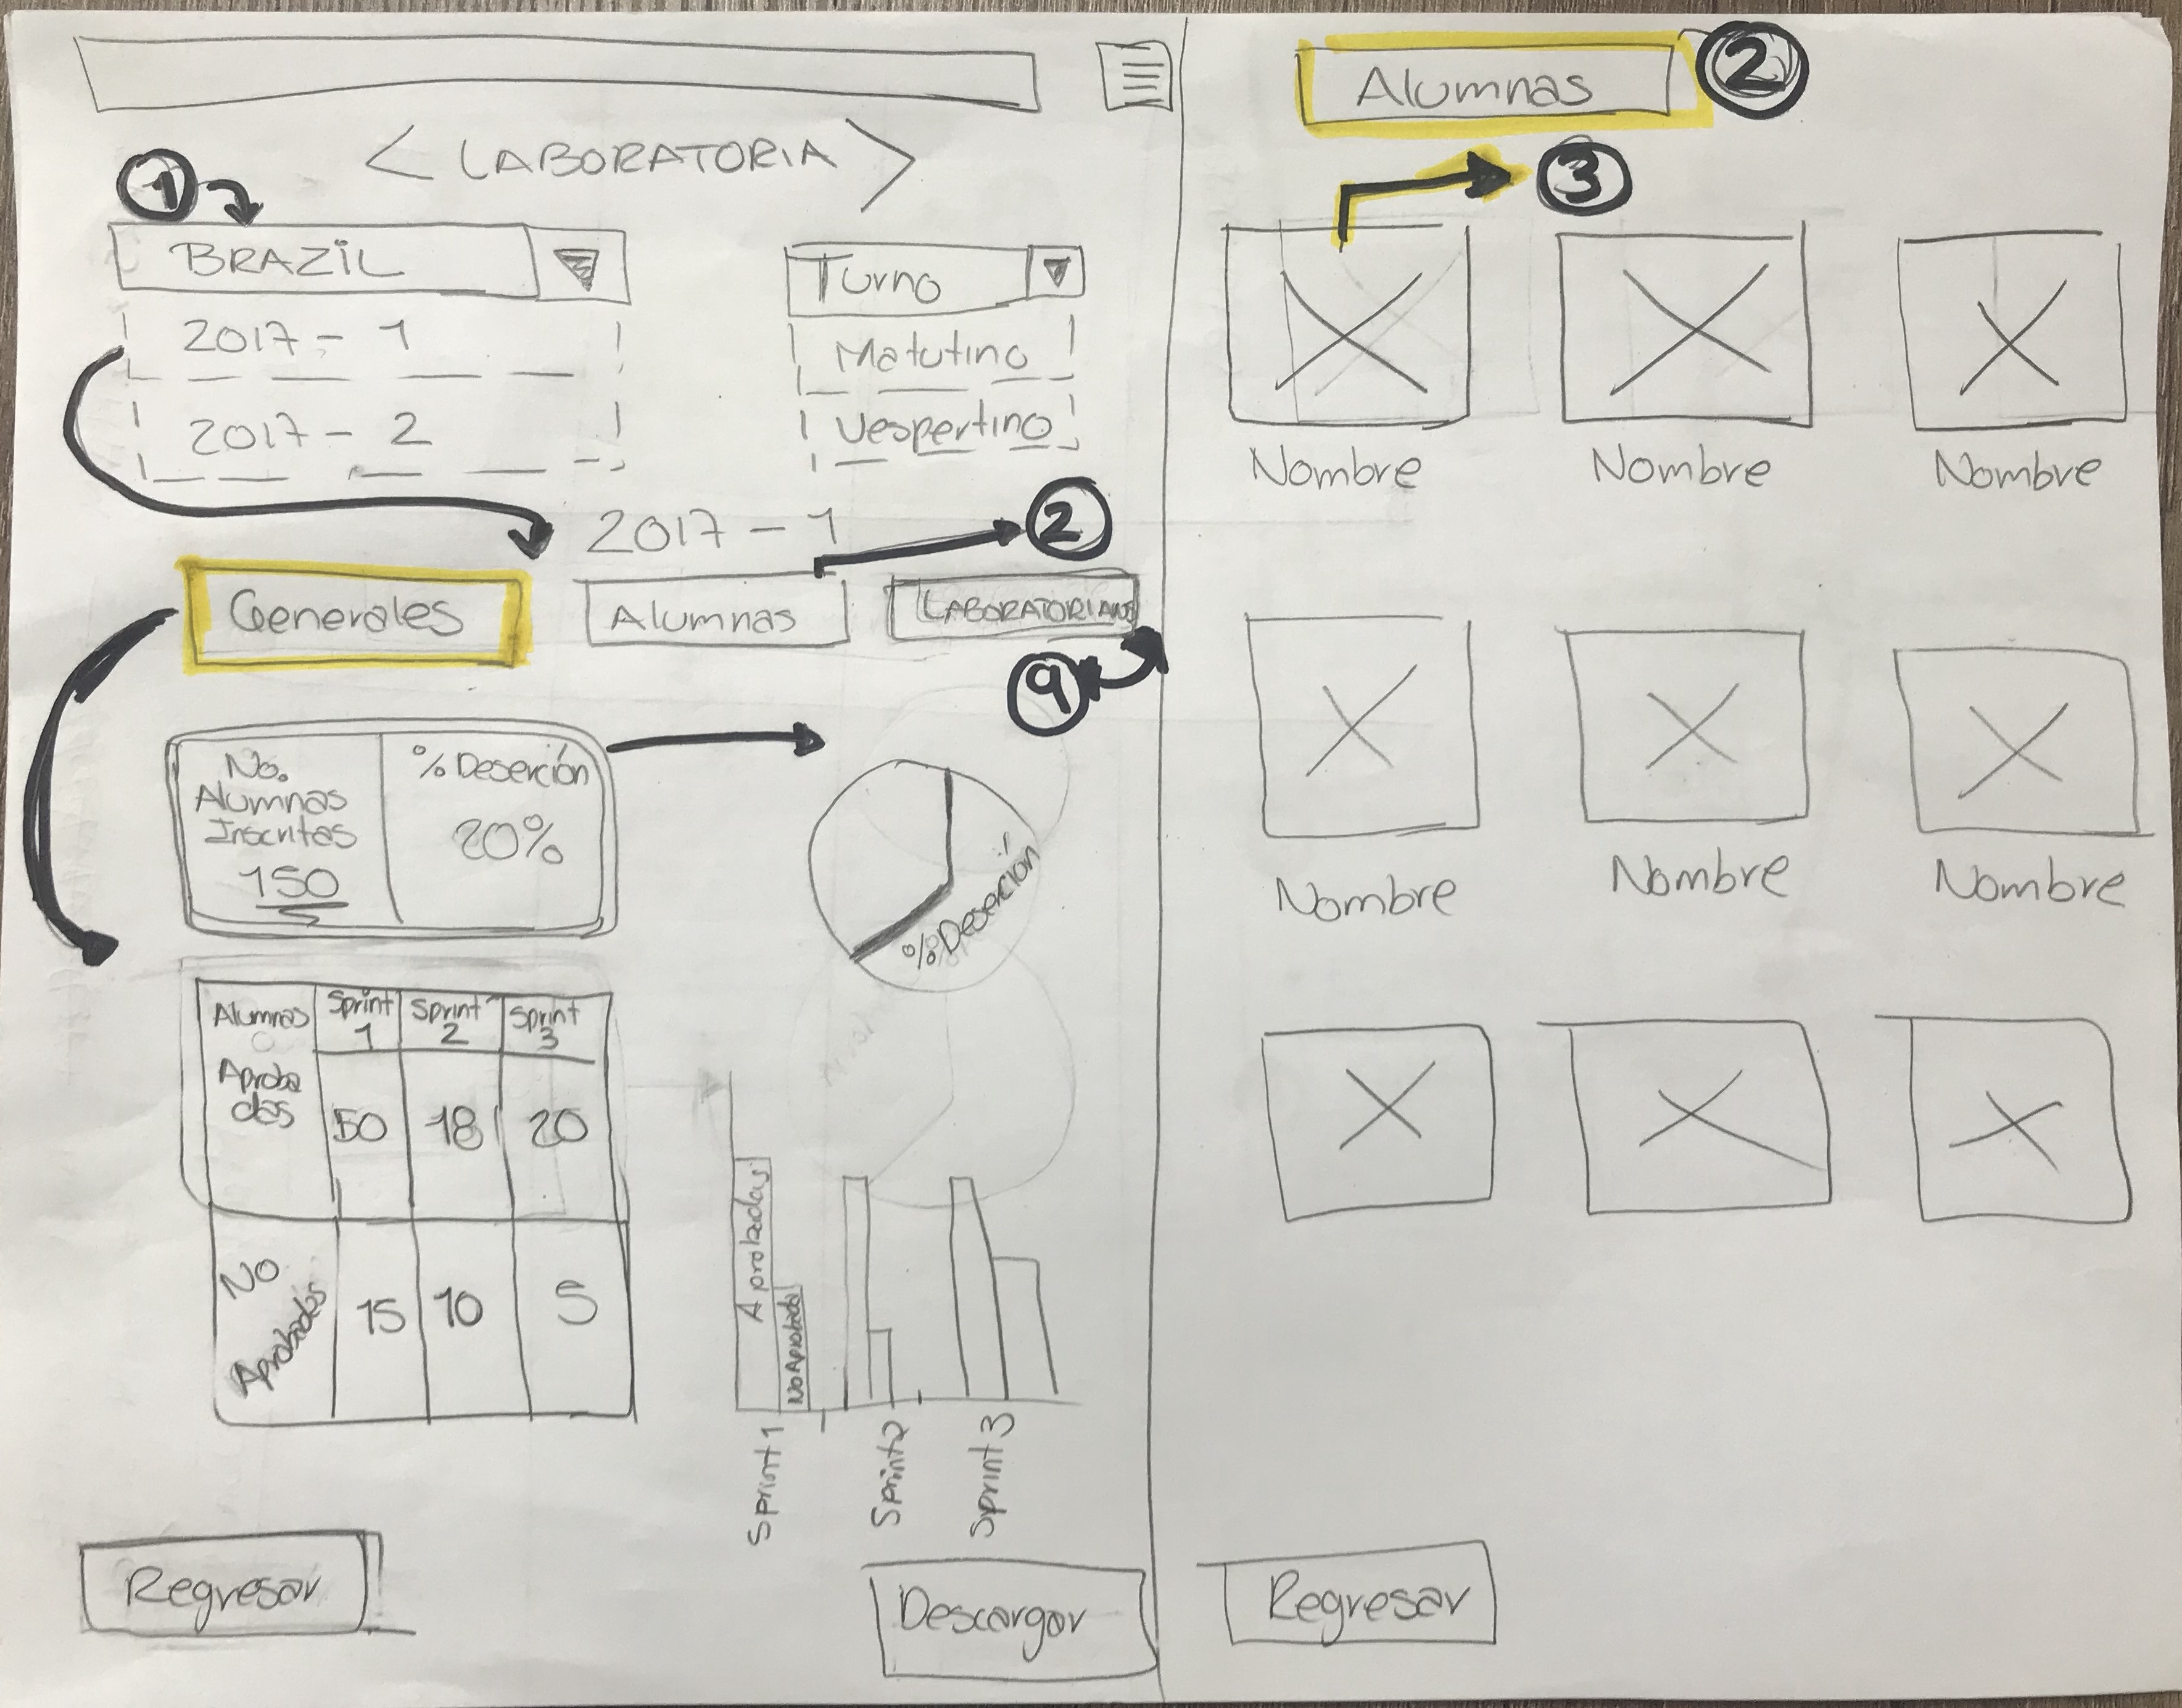 < LABORATORIA >
1
BRAZIL
2017 - 1
2017 - 2
Turno
Matutino
Vespertino
2017 - 1
2
Generales
Alumnas
LABORATORIANS
9
No.
Alumnas
Inscritas
150
% Deserción
20%
% Deserción
Alumnas
Sprint 1
Sprint 2
Sprint 3
Aproba
das
50
18
20
No
Aprobadas
15
10
5
Aprobadas
No Aprobada
Sprint 1
Sprint 2
Sprint 3
Regresar
Descargar
Alumnas
2
3
Nombre
Nombre
Nombre
Nombre
Nombre
Nombre
Regresar